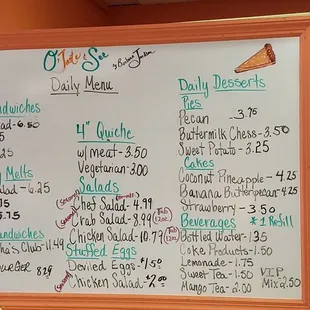 O'Taste & See
by
Daily Menu
andwiches
alad-6.50
.25
y Melts
Salad - 6.25
.15
5.75
andwiches
ha's Club-11.49
BURGER 8.29
4" Quiche
w/meat-3.50
Vegetarian-3.00
Salads
Chef Salad-4.99
Crab Salad-8.99
Chicken Salad-10.79
12oz
Stuffed Eggs
Devilied Eggs-$1.50
Chicken Salad-$2.00
Daily Desserts
Pies
Pecan -3.75
Buttermilk Chess-3.50
Sweet Potato-3.25
Cakes
Coconut Pineapple-4.25
Banana Butterpecan-4.25
Strawberry-3.50
Beverages *1 Refill
Bottled Water-1.35
Coke Products-1.50
Lemonade-1.75
Sweet Tea-1.50
Mango Tea-2.00
VIP
Mix 2.50